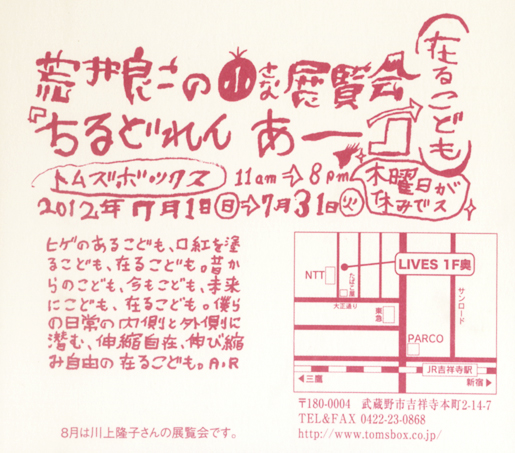 荒井良二の小さな展覧会
『ちるどれん あーつ』
(在るこども)
トムズボックス 11am⇨8pm
木曜日が
休みでス
2012年7月1日㊐⇨7月31日㊋
ヒゲのあるこども、口紅を塗
るこども、在るこども。昔か
らのこども、今もこども、未来
にこども、在るこども。僕ら
の日常の内側と外側に
潜む、伸縮自在、伸び縮
み自由の在るこども。A・R
8月は川上隆子さんの展覧会です。
LIVES 1F奥
NTT
たばこ屋
大正通り
東急
サンロード
PARCO
JR吉祥寺駅
◀三鷹
新宿▶
〒180-0004 武蔵野市吉祥寺本町2-14-7
TEL&FAX 0422-23-0868
http://www.tomsbox.co.jp/